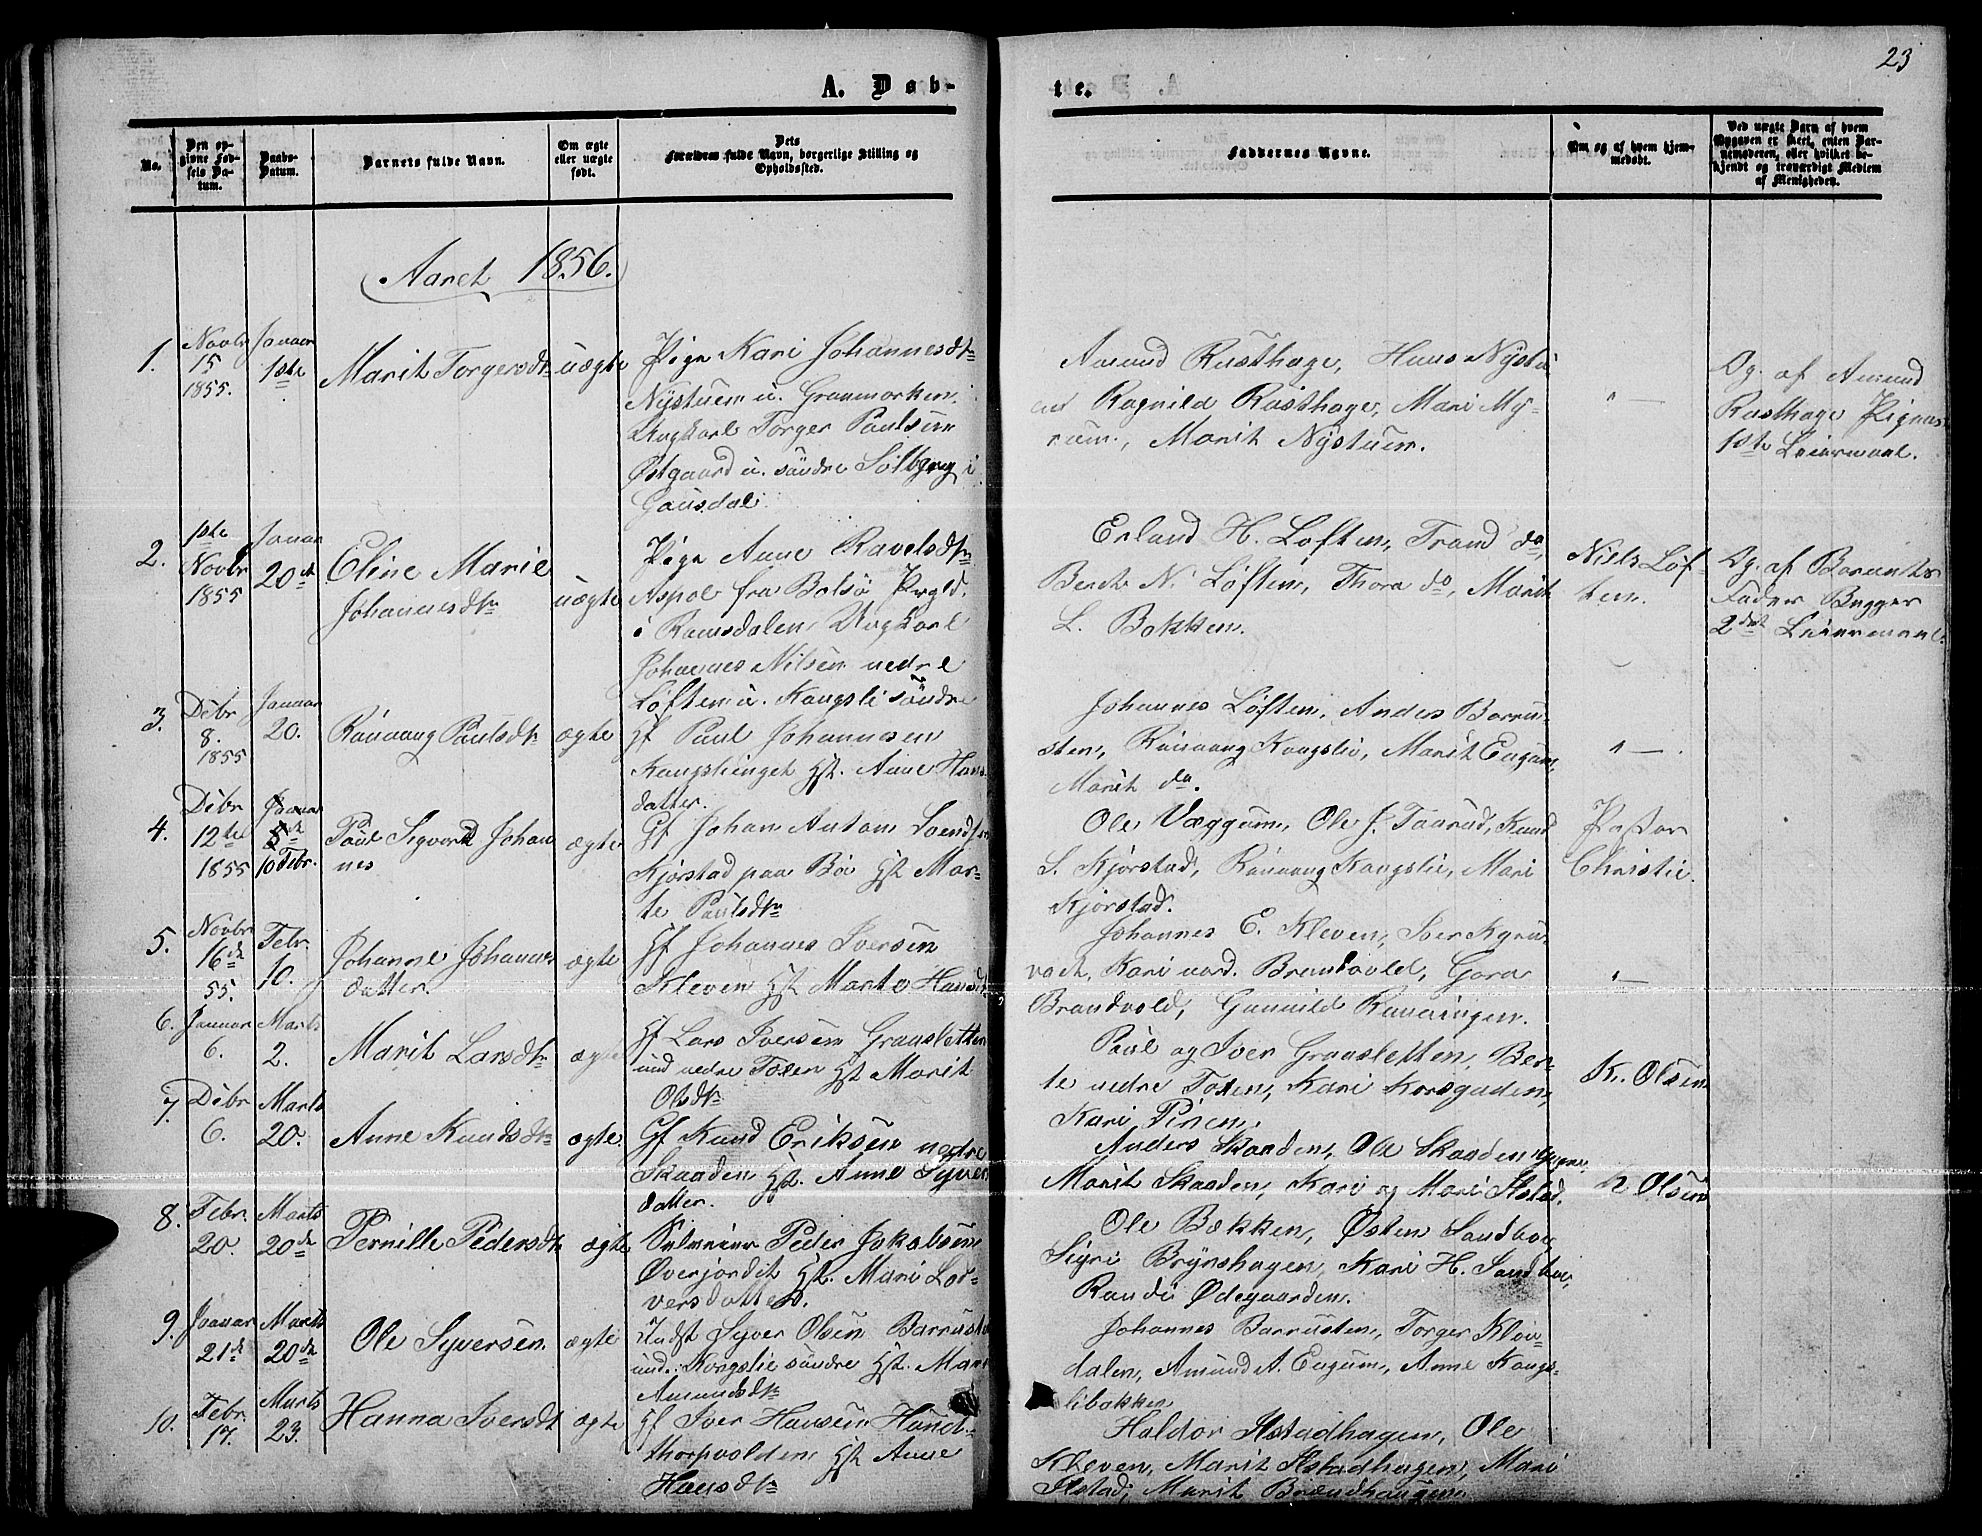 23
A. Døb-
te.
No.
Den op-
givne Fød-
sels Da-
tum.
Daabs-
Datum.
Barnets fulde Navn.
Om ægte
eller uægte
født.
Dets
Forældres fulde Navn, borgerlige Stilling og
Opholdssted.
Faddernes Navne.
Om og af hvem hjem-
medøbt.
Ved uægte Barn af hvem
Opgaven er skeet, enten Bar-
nemoderen, eller hvilket be-
kjendt og troværdigt Medlem
af Menigheden.
Aaret 1856.
1.
Novbr
15
1855.
Januar
1ste
Marit Torgersdtr
uægte
Pige Kari Johannesdtr
Nystuen u. Graumorken.
Ungkarl Torger Paulsen
Østgaard u. søndre Solberg i
Gausdal.
Amund Rusthage, Hans Nystu
en Ragnild Rusthage, Mari My-
rum, Marit Nystuen.
" —
Og. af Amund
Rusthage Pigens
1ste Leiermaal.
2.
1ste
Novbr
1855
Januar
20de
Eline Marie
Johannesdtr
uægte
Pige Anne Ravelsdtr
Aspol fra Bolsø Prgld.
i Romsdalen Ungkarl
Johannes Nilsen nedre
Løften u. Kongsli søndre
Erland H. Løften, Trand do,
Berdt N. Løften, Thora do, Marit
L. Bakken.
Niels Løf-
ten.
Og. af Barnets
Fader Bygger
2det Leiermaal.
3.
Debr
8.
1855
Januar
20.
Rønnaug Paulsdtr
ægte
Gf Paul Johannesen
Kongslienget Hst. Anne Hans
datter.
Johannes Løften, Anders Barru-
sten, Rønnaug Kongslie, Marit Engum,
Marit do.
" — .
4.
Debr
12te
1855
Januar
5te
10 Febr.
Paul Sigvard Johan
nes
ægte
Gf Johan Anton Svendsen
Kjørstad paa Bøe Hst Mar-
te Paulsdtr
Ole Væggum, Ole J. Taarud, Knud
S. Kjørstad, Rønnaug Kongslie, Mari
Kjørstad.
Pastor
Christie.
5.
Novbr
16de
55.
Febr.
10.
Johanne Johannes
datter.
ægte
Gf Johannes Iversen
Kleven Hst Marte Hansdt
Johannes E. Kleven, Iver
Kari nord. Brandvold, Goro
Brandvold, Gunnild
" —
6.
Januar
6.
Marts
2.
Marit Larsdtr
ægte
Gf Lars Iversen Grausletten
und nedre Toxen Hst Marit
Olsdtr
Paul og Iver Graasletten, Ber-
te nedre Toxen, Kari Korsgaden,
Kari Pinen.
K. Olsen
7.
Debr
6.
Marts
20.
Anne Knudsdtr
ægte.
Gf Knud Eriksen nedre
Skaaden Hst. Anne Syver
datter.
Anders Skaaden, Ole Skaaden
Marit Skaaden, Kari og Mari Ilstad.
K Olsen
8.
Febr.
20.
Marts
20de
Pernille Pedersdt
ægte
Selveier Peder Jakobsen
Øverjordet Hst. Mari Lor-
versdatter.
Ole Bakken, Østen Sandboe,
Sigri Brynshagen, Kari H. Sandboe,
Randi Ødegaarden.
9.
Januar
21de
Marts
20de
Ole Syversen.
ægte
Indst Syver Olsen Barrusten
und. Kongslie søndre Hst. Mari
Amundsdtr
Johannes Barrusten, Torger Kløv-
dalen, Amund A. Engum, Anne Kongs-
libakken
10.
Febr.
17.
Marts
23.
Hanna Iversdt
ægte
Gf Iver Hansen Hund-
thorpvolden Hst Anne
Hansdtr
Haldor Ilstadhagen, Ole
Kleven, Marit Ilstadhagen, Mari
Ilstad, Marit Brændhaugen